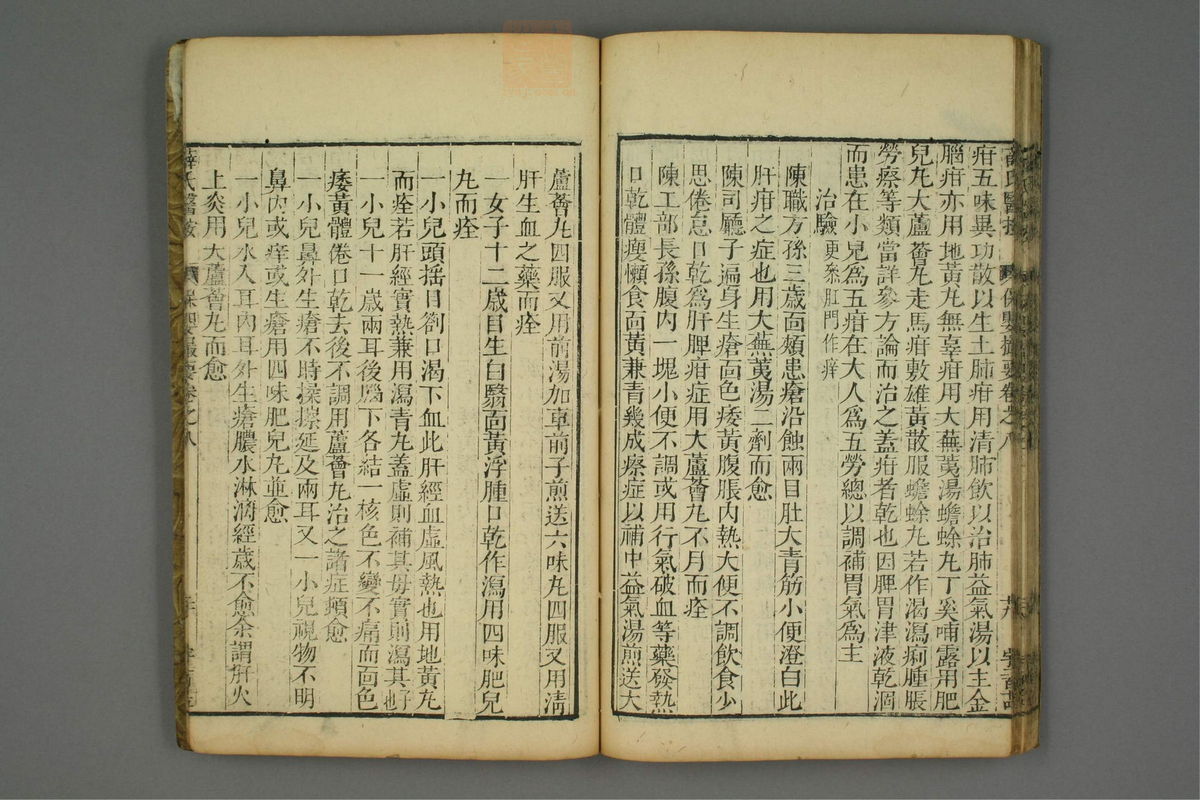 疳五味異功散以生土肺疳用清肺飲以治肺益氣湯以主金
腦疳亦用地黃丸無辜疳用大蕪荑湯蟾蜍丸丁奚哺露用肥
兒丸大蘆薈丸走馬疳敷雄黃散服蟾蜍丸若作渴瀉痢腫脹
勞瘵等類當詳參方論而治之蓋疳者乾也因脾胃津液乾涸
而患在小兒爲五疳在大人爲五勞總以調補胃氣爲主
治驗更叅肛門作痒
陳職方孫三歲面頰患瘡沿蝕兩目肚大青筋小便澄白此
肝疳之症也用大蕪荑湯二劑而愈
陳司廳子遍身生瘡面色痿黃腹脹內熱大便不調飲食少
思倦怠口乾爲肝脾疳症用大蘆薈丸不月而痊
陳工部長孫腹內一塊小便不調或用行氣破血等藥發熱
口乾體瘦懶食面黃兼青幾成瘵症以補中益氣湯煎送大
蘆薈丸四服又用前湯加車前子煎送六味丸四服又用清
肝生血之藥而痊
一女子十二歲目生白翳面黃浮腫口乾作瀉用四味肥兒
丸而痊
一小兒頭搖目劄口渴下血此肝經血虛風熱也用地黃丸
而痊若肝經實熱兼用瀉青丸蓋虛則補其母實則瀉其子也
一小兒十一歲兩耳後腦下各結一核色不變不痛而面色
痿黃體倦口乾去後不調用蘆薈丸治之諸症頓愈
一小兒鼻外生瘡不時搡擦延及兩耳又一小兒視物不明
鼻內或痒或生瘡用四味肥兒丸並愈
一小兒水入耳內耳外生瘡膿水淋漓經歲不愈余謂肝火
上炎用大蘆薈丸而愈
薛氏醫按 保嬰撮要卷之八